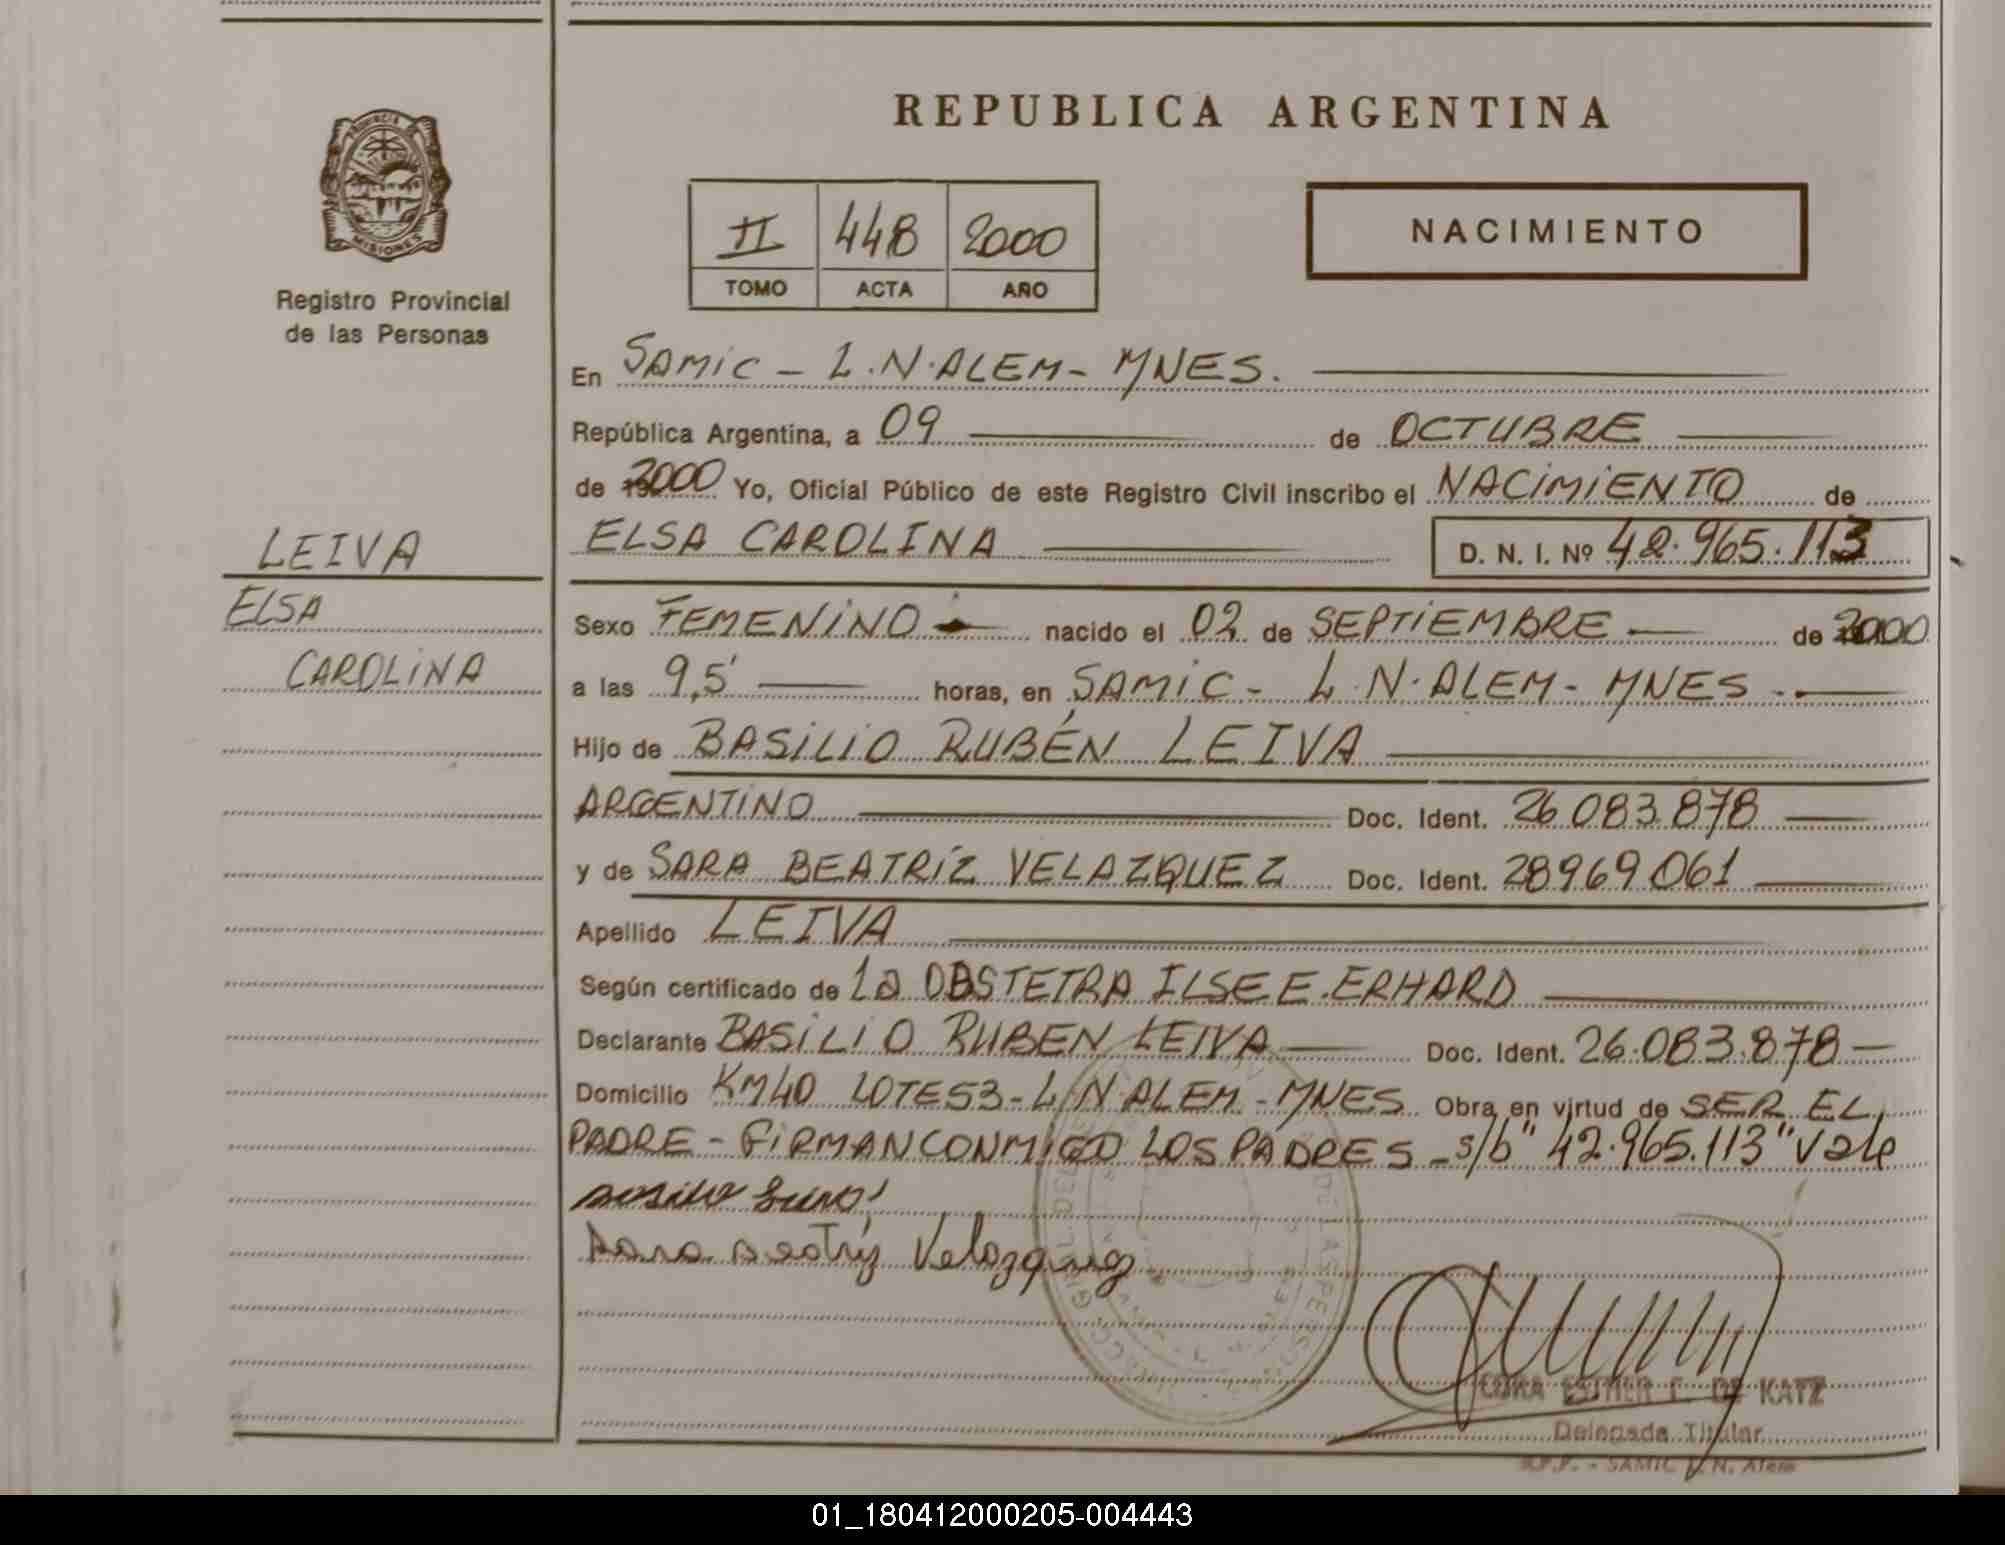 REPUBLICA ARGENTINA
PROVINCIA DE
MISIONES
Registro Provincial
de las Personas
II 448 2000
TOMO ACTA AÑO
NACIMIENTO
En SAMIC - L.N.ALEM- MNES.
República Argentina, a 09 de OCTUBRE
de 2000 Yo, Oficial Público de este Registro Civil inscribo el NACIMIENTO de
LEIVA
ELSA CAROLINA D. N. I. Nº 42.965.113
ELSA
CAROLINA
Sexo FEMENINO nacido el 02 de SEPTIEMBRE de 2000
a las 9,5' horas, en SAMIC - L.N.ALEM- MNES -
Hijo de BASILIO RUBÉN LEIVA
ARGENTINO Doc. Ident. 26.083.878
y de SARA BEATRIZ VELAZQUEZ Doc. Ident. 28969061
Apellido LEIVA
Según certificado de La OBSTETRA ILSE E. ERHARD
Declarante BASILIO RUBEN LEIVA Doc. Ident. 26.083.878
Domicilio KM40 LOTE53-L.N.ALEM - MNES Obra en virtud de SER EL
PADRE - FIRMAN CONMIGO LOS PADRES - s/b "42.965.113" vale
Sara Beatriz Velazquez
ESTHER DE KATZ
Delegada Titular
SAMIC L. N. Alem
01_180412000205-004443